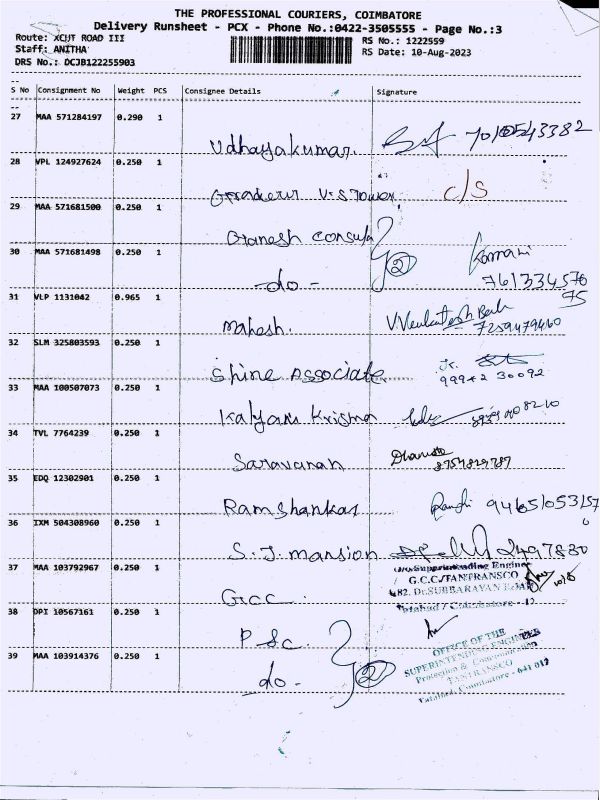 THE PROFESSIONAL COURIERS, COIMBATORE
Delivery Runsheet - PCX - Phone No.:0422-3505555 - Page No.:3
Route: XCUT ROAD III RS No.: 1222559
Staff: ANITHA RS Date: 10-Aug-2023
DRS No.: DCJB122255903
S No Consignment No Weight PCS Consignee Details Signature
27 MAA 571284197 0.290 1
Udhayakumar.
28 VPL 124927624 0.250 1
V.S Tower, C/S
29 MAA 571681500 0.250 1
Ganesh Consula
30 MAA 571681498 0.250 1
-do- 2
761334576
75
31 VLP 1131042 0.965 1
Mahesh. 7259479460
32 SLM 325803593 0.250 1
Shine Associate 99942 30092
33 MAA 100507073 0.250 1
Kalyani Krishna
34 TVL 7764239 0.250 1
Saravanan
35 EDQ 12302901 0.250 1
Ramshankar
36 IXM 504308960 0.250 1
S.J. mansion
37 MAA 103792967 0.250 1
O/o Superintending Engineer
G.C.C/TANTRANSCO
GCC 82, Dr.SUBBARAYAN ROAD
Tatabad / Coimbatore - 12
38 DPI 10567161 0.250 1
PSC.
OFFICE OF THE
SUPERINTENDING ENGINEER
39 MAA 103914376 0.250 1
Protection & Communication
TANTRANSCO
do- 2 Tatabad, Coimbatore - 641 012